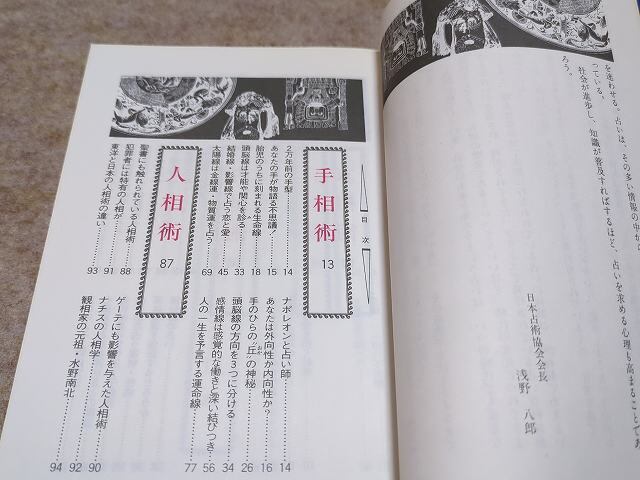 を迷わせる。占いは、その多い情報の中か
っている。
社会が進歩し、知識が普及すればするほど、占いを求める心理も高まることであ
ろう。
日本占術協会会長
浅野 八郎
目次
手相術 13
2万年前の手型 14
あなたの手が物語る不思議! 15
胎児のうちに刻まれる生命線 18
頭脳線は才能や関心を診る 33
結婚線・影響線で占う恋と愛 45
太陽線は金線運・物質運を占う 69
ナポレオンと占い師 14
あなたは外向性か内向性か? 16
手のひらの“丘”の神秘 26
頭脳線の方向を3つに分ける 34
感情線は感覚的な働きと深い結びつき 56
人の一生を予言する運命線 77
人相術 87
聖書にも触れられている人相術 88
犯罪者には特有の人相が 91
東洋と日本の人相術の違い 93
ゲーテにも影響を与えた人相術 90
ナチスの人相学 92
観相家の元祖・水野南北 94